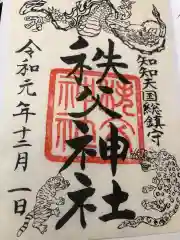 知知夫国総鎮守
秩父神社
令和元年十二月一日